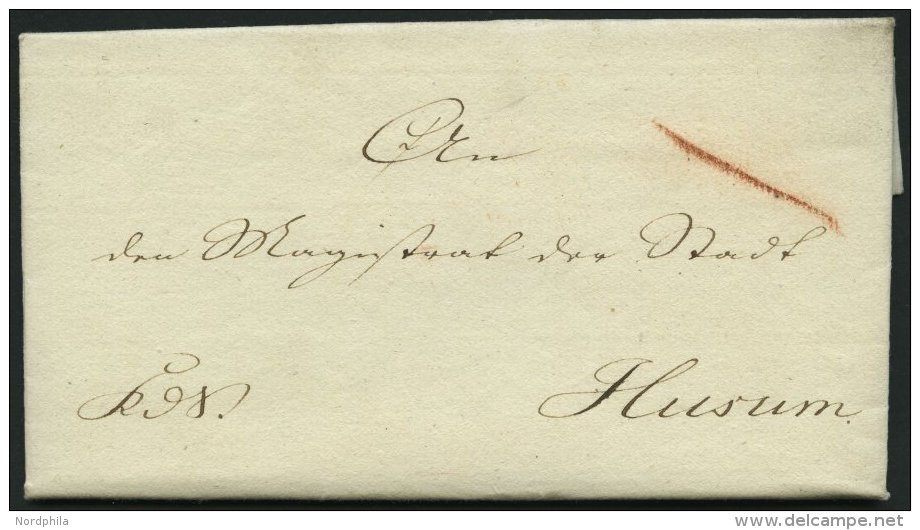 An
den Magistrat der Stadt
KDS. Husum.
Nordphila
delcampe.net